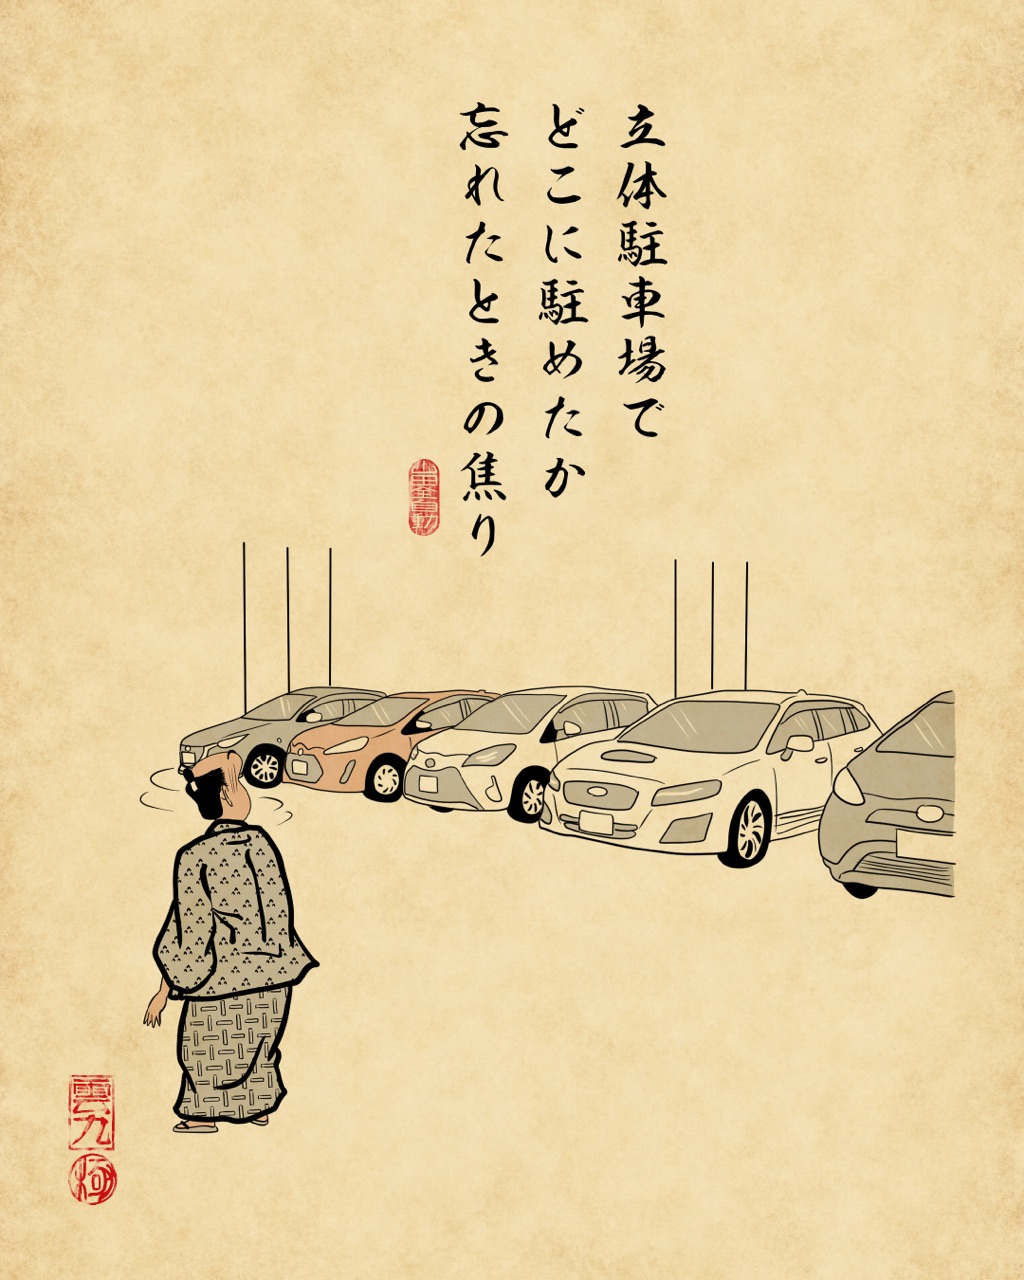 立体駐車場で
どこに駐めたか
忘れたときの焦り